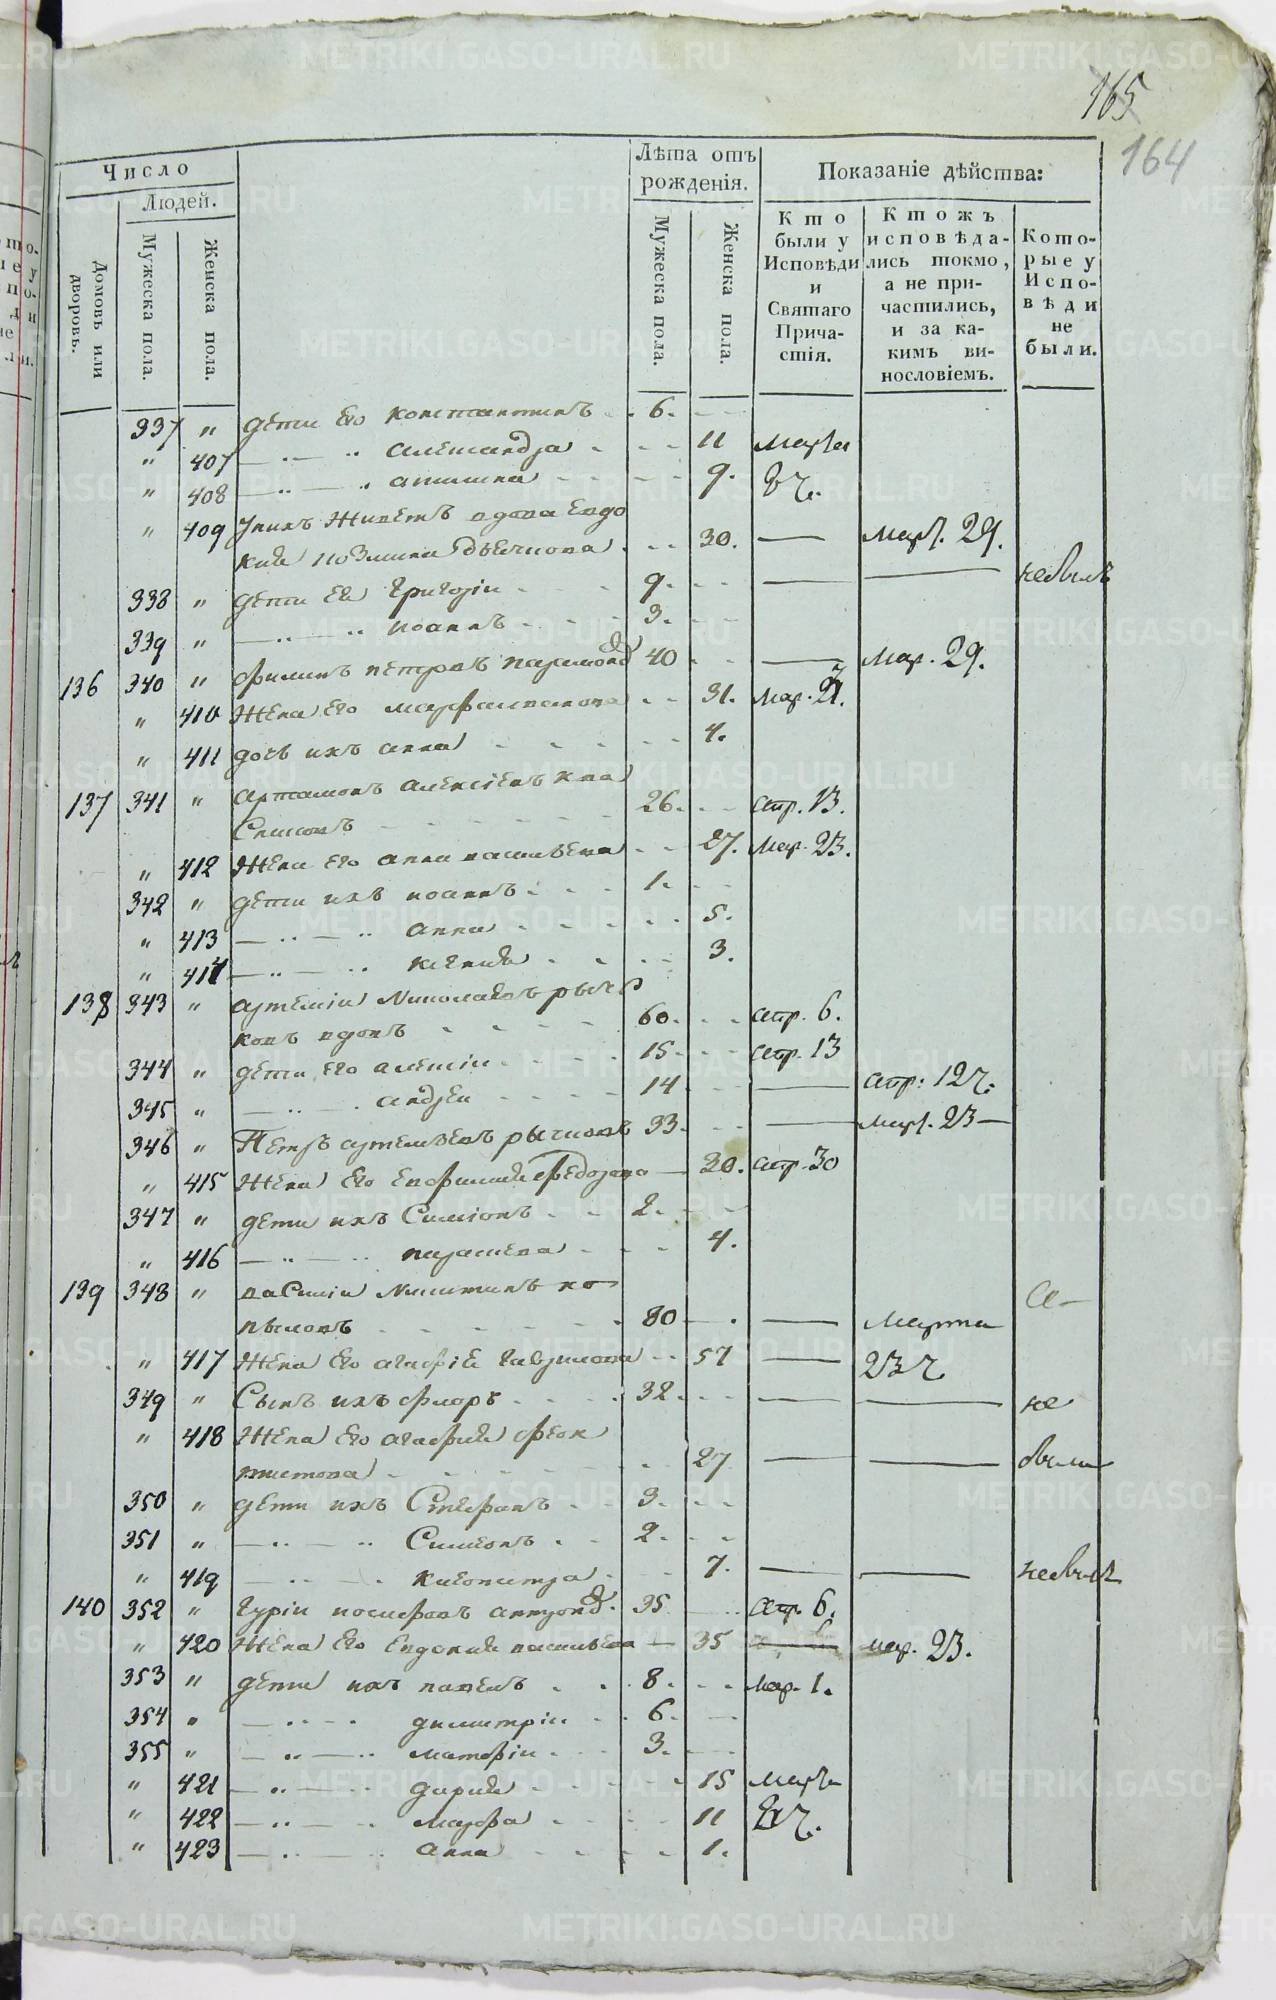 165
164
Число
Людей.
Домовъ или дворовъ.
Мужеска пола.
Женска пола.
Лѣта отъ рожденія.
Мужеска пола.
Женска пола.
Показаніе дѣйства:
Кто были у Исповѣди и Святаго Причастія.
Ктожъ исповѣдались токмо, а не причастились, и за какимъ винословіемъ.
Которые у Исповѣди не были.
337 " дети Его Константинъ 6.
" 407 Александра 11 Марта
" 408 9. 8 ч.
" 409 У нихъ Живетъ вдова Евдо
кия 30. Мар. 29.
338 " дети Ея Григорiи 9. небылъ
339 " Иоаннъ 3.
136 340 " Филипъ Петровъ 40 Мар. 29.
" 410 Жена Его 31. Мар. 21.
" 411 дочь ихъ Анна 4.
137 341 " Артамонъ Алексiевъ Ква
Снинъ 26. Апр. 13.
" 412 Жена Его Анна Васильева 27. Мар. 23.
342 " дети ихъ Иоаннъ 1.
" 413 Анна 5.
" 414 Ксения 3.
138 343 " Артемiи Николаевъ Рыч
ковъ вдовъ 60. Апр. 6.
344 " дети Его Алексiи 15. Апр. 13
345 " Андреи 14 Апр: 12 ч.
346 " Петръ Артемьевъ Рычковъ 33. Мар. 23
" 415 Жена Его Евфимия Федорова 30. Апр. 30
347 " дети ихъ Симiонъ 2.
" 416 Параскева 4.
139 348 " Василiи Никитинъ Ко
пыловъ 80 Марта
" 417 Жена Его Агафiя Гаврилова 57 23 ч
349 " Сынъ ихъ Флоръ 32. не
" 418 Жена Его Агафия Феок
тистова 27 были
350 " дети ихъ Стефанъ 3.
351 " Симеонъ 2.
" 419 7. небыла
140 352 " Гурiи Иосифовъ 35 Апр 6.
" 420 Жена Его Евдокия Васильева 35 Мар. 23.
353 " дети ихъ Павелъ 8. Мар. 1.
354 " Димитрiи 6.
355 " Матфiи 3.
" 421 Дария 15 Марта
" 422 Марфа 11
" 423 Анна 1.
METRIKI.GASO-URAL.RU